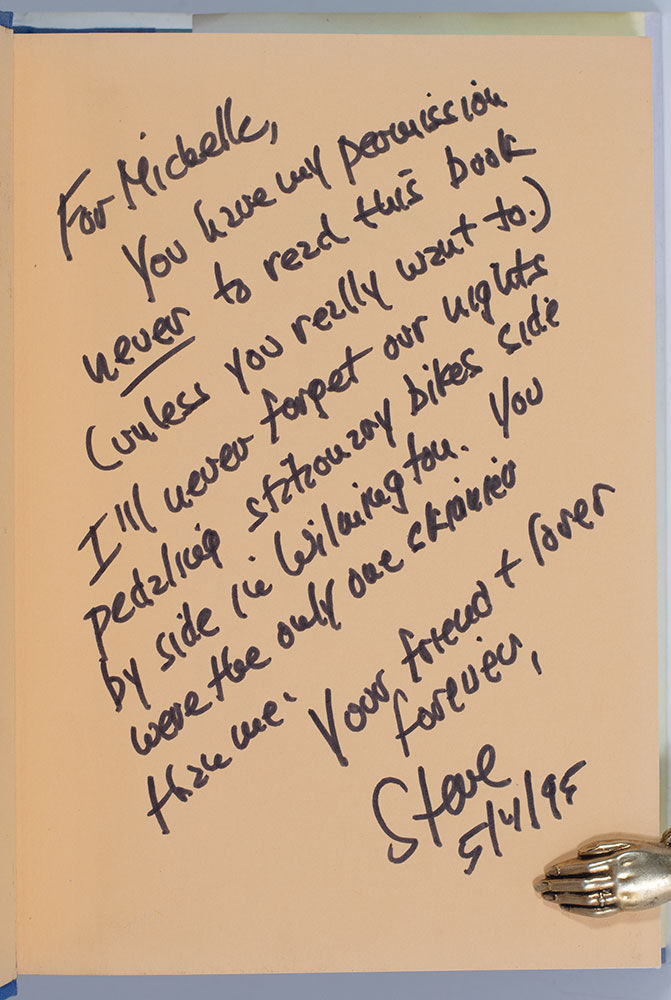 For Michelle,
You have my permission
never to read this book
(unless you really want to.)
I'll never forget our nights
pedaling stationary bikes side
by side in Wilmington. You
were the only one skinnier
than me. Your friend + lover
forever,
Steve
5/4/95